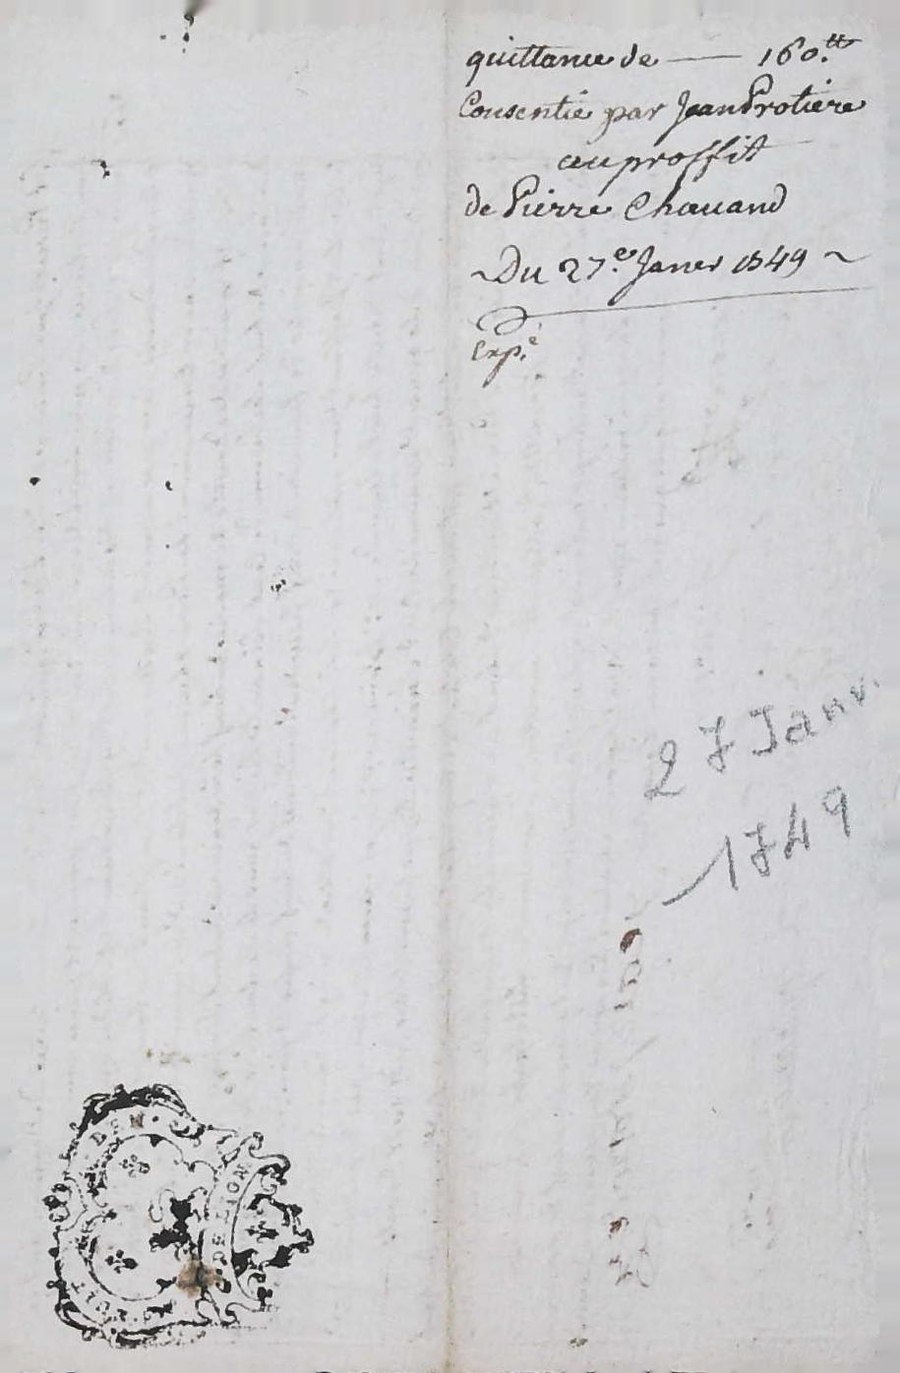 quittance de — 160.tt
Consentie par Jean Protiere
au proffit
de Pierre Chauand
~ Du 27.e Janer 1749 ~
Exp.e
27 Janv.
1749
DE LION